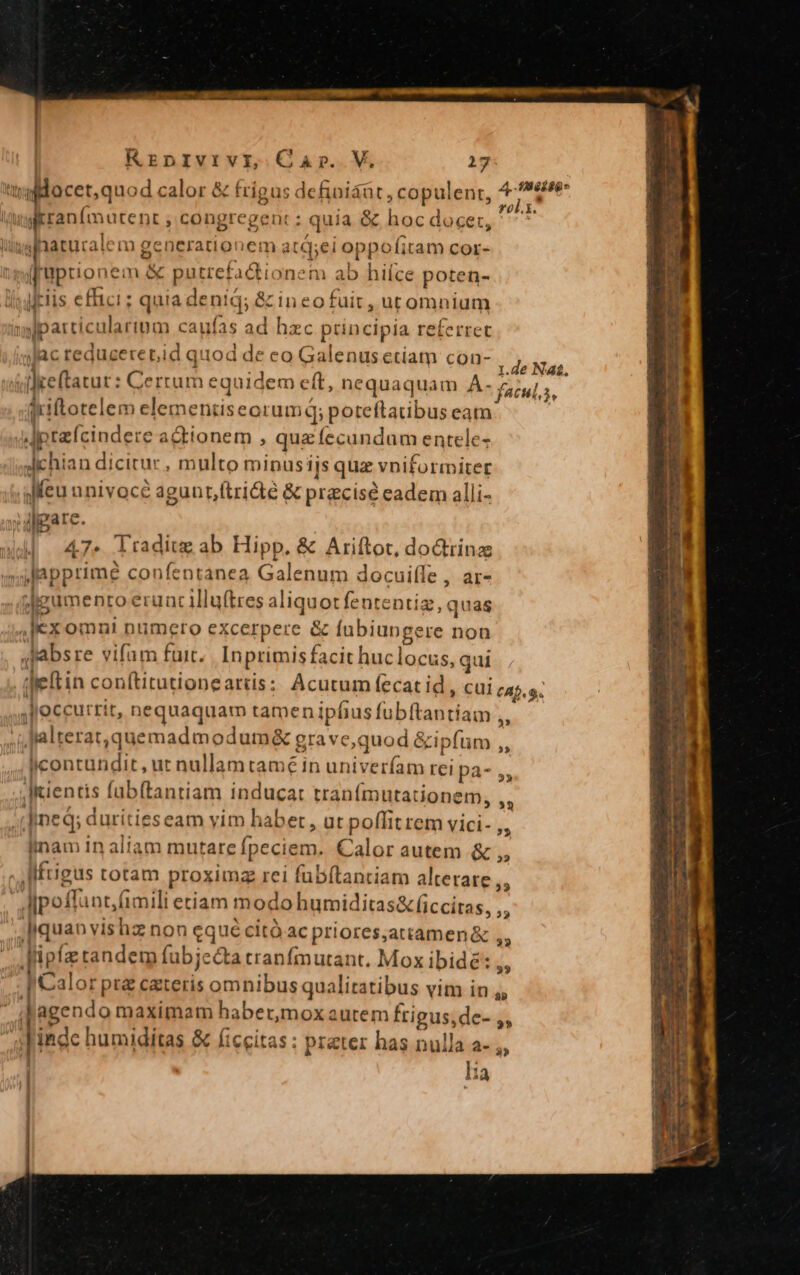 REDIVIVI, CAP. V. 27
docet, quod calor & frigus definiãt, copulent,
tranſmutent, congregent: quia & hoc docet,
naturalem generationem atq; ei oppoſitam cor-
ruptionem & putrefactionem ab hiſce poten-
tiis effici: quia deniq; & in eo fuit, ut omnium
particularium cauſas ad hæc principia referret
ac reduceret, id quod de eo Galenus etiam con-
teſtatur: Certum equidem eſt, nequaquam A-
riſtotelem elementis eorumq́; poteſtatibus eam
præſcindere actionem, quæ ſecundum entele-
chian dicitur, multo minus ijs quæ vniformiter
ſeu univocè agunt, ſtrictè & præcisè eadem alli-
gare.
47. Traditæ ab Hipp. & Ariſtot. doctrinæ
apprimè conſentanea Galenum docuiſſe, ar-
gumento erunt illuſtres aliquot ſententiæ, quas
ex omni numero excerpere & ſubiungere non
abs re viſum fuit. Inprimis facit huc locus, qui
eſt in conſtitutione artis: Acutum ſecat id, cui
occurrit, nequaquam tamen ipſius ſubſtantiam „
alterat, quemadmodum & grave, quod & ipſum „
contundit, ut nullam tamẽ in univerſam rei pa- „
tientis ſubſtantiam inducat tranſmutationem, „
neq; durities eam vim habet, ut poſſit rem vici- „
nam in aliam mutare ſpeciem. Calor autem & „
frigus totam proximæ rei ſubſtantiam alterare „
poſſunt, ſimili etiam modo humiditas & ſiccitas, „
quanvis hæ non equè citò ac priores, attamen & „
ipſæ tandem ſubjecta tranſmutant. Mox ibidẽ: „
Calor præ cæteris omnibus qualitatibus vim in „
agendo maximam habet, mox autem frigus, de- „
inde humiditas & ſiccitas: præter has nulla a- „
lia
1. de Nat.
facul. 3.
cap. 9.